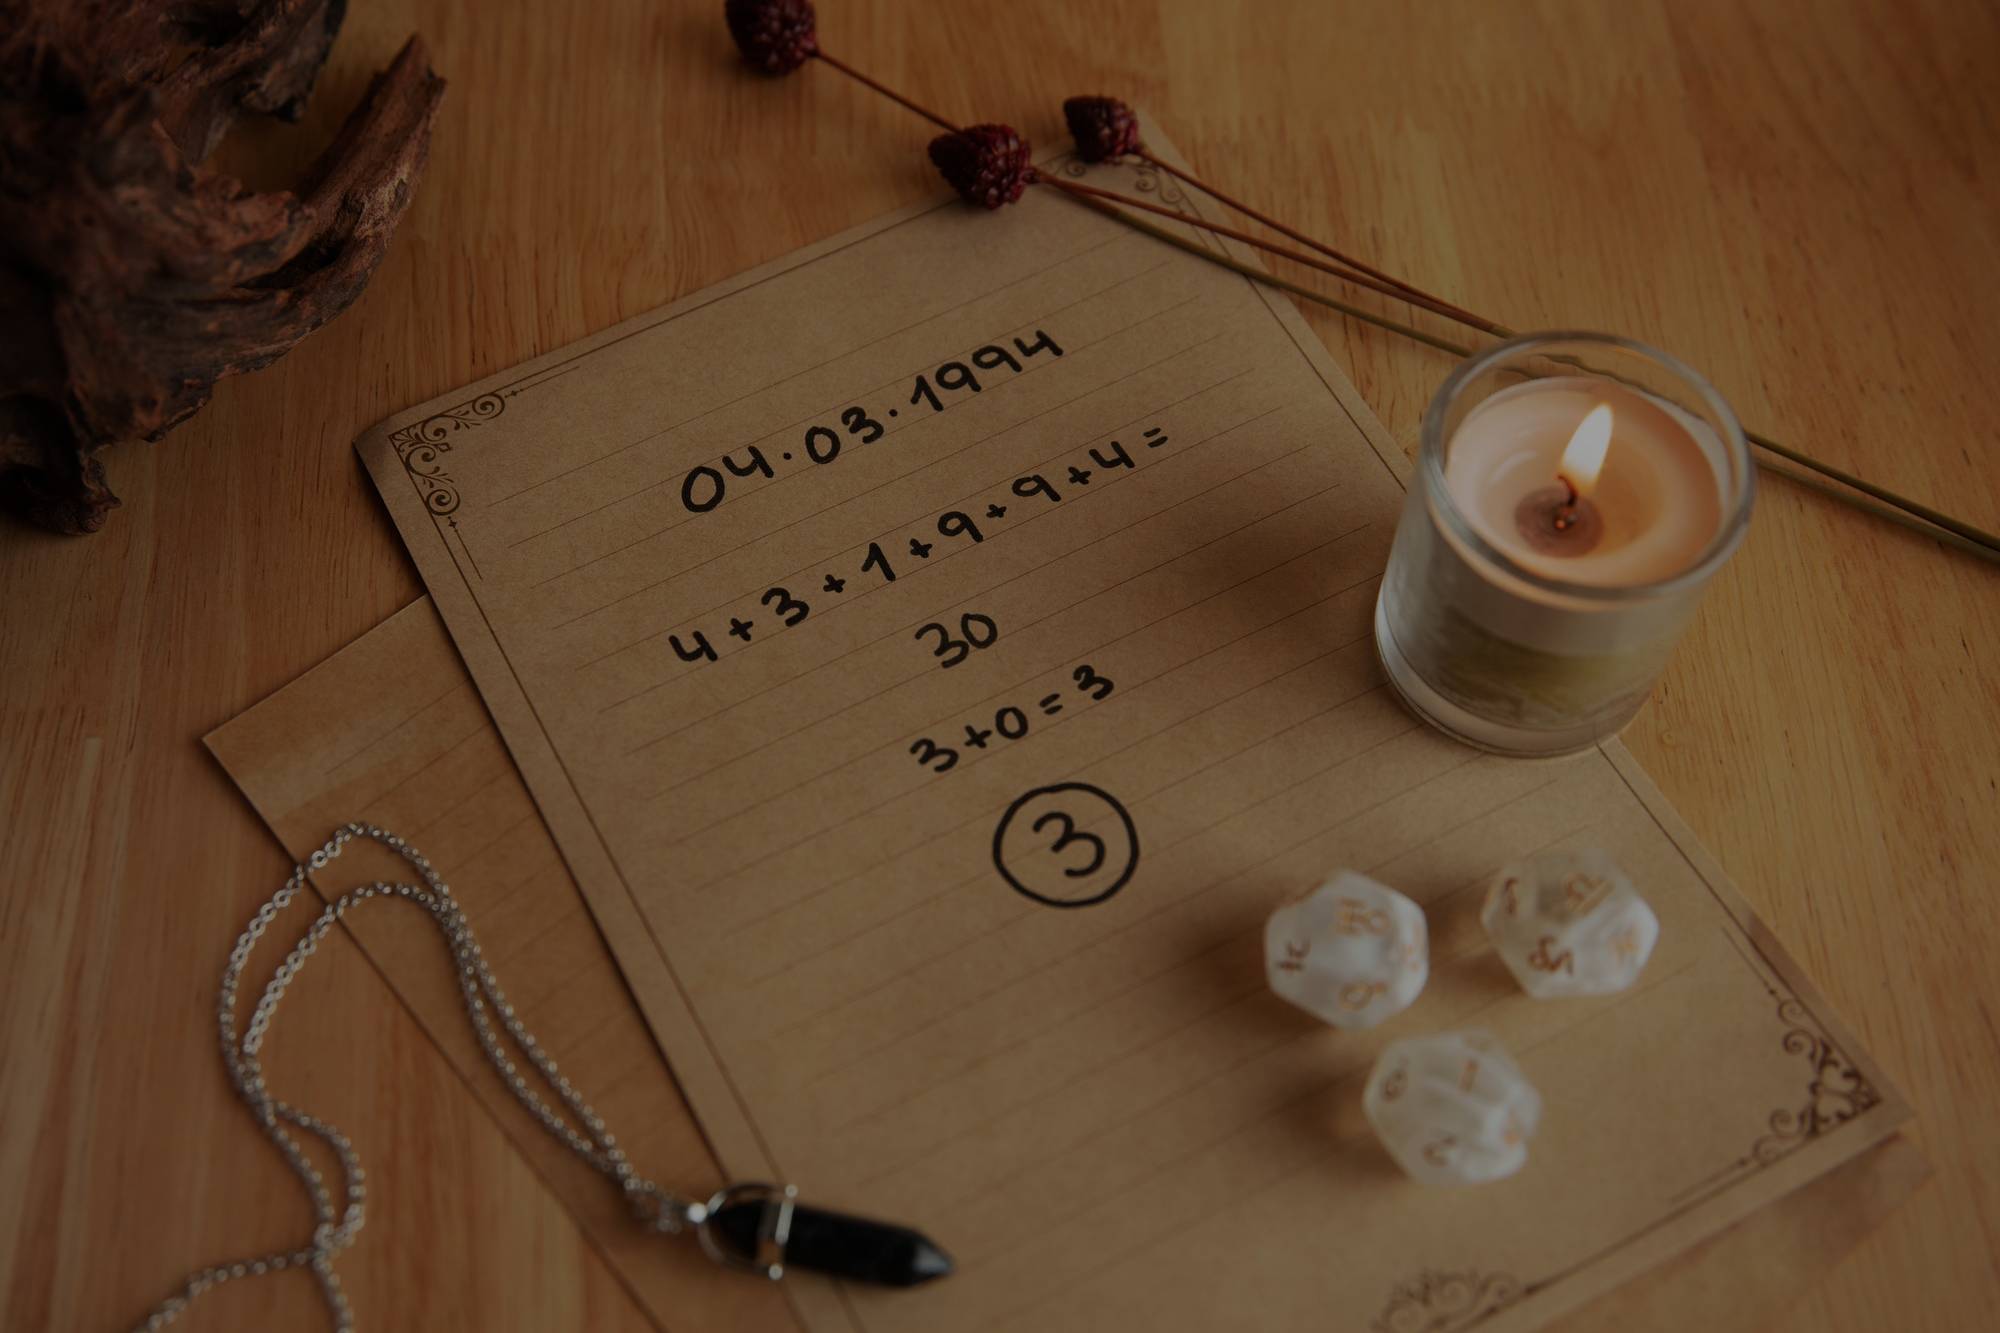 04.03.1994
4+3+1+9+9+4=
30
3+0=3
3